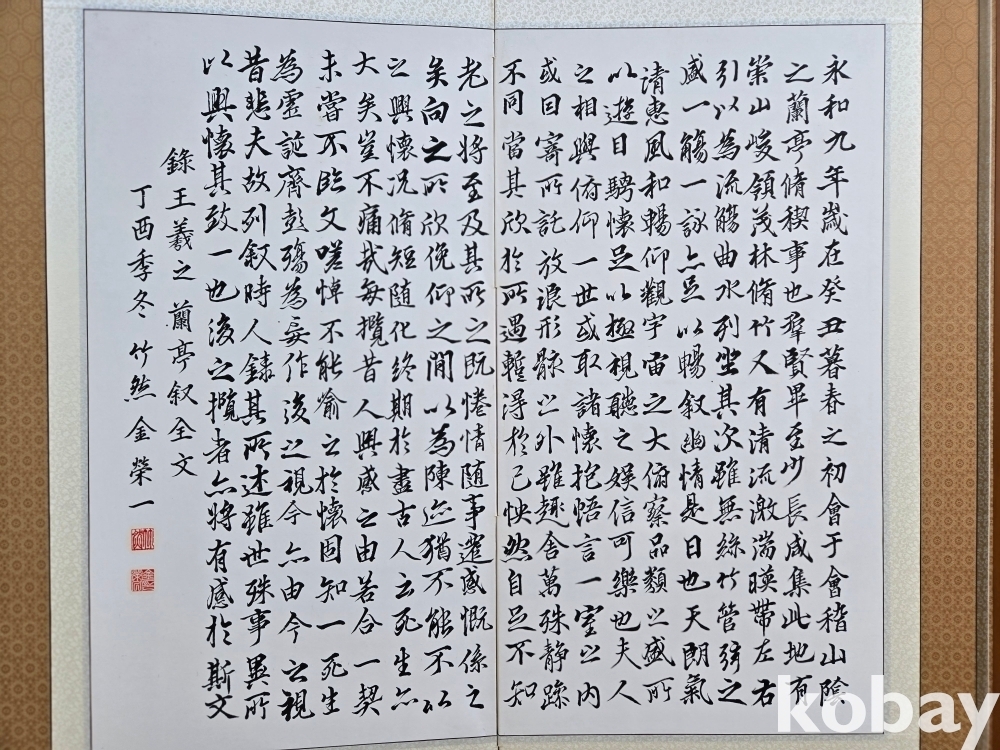 永和九年歲在癸丑暮春之初會于會稽山陰
之蘭亭脩稧事也羣賢畢至少長咸集此地有
崇山峻領茂林脩竹又有清流激湍暎帶左右
引以為流觴曲水列坐其次雖無絲竹管弦之
盛一觴一詠亦足以暢叙幽情是日也天朗氣
清惠風和暢仰觀宇宙之大俯察品類之盛所
以遊目騁懷足以極視聽之娛信可樂也夫人
之相與俯仰一世或取諸懷抱悟言一室之內
或曰寄所託放浪形骸之外雖趣舍萬殊静躁
不同當其欣於所遇蹔得於己怏然自足不知
老之將至及其所之既惓情隨事遷感慨係之
矣向之所欣俛仰之間以為陳迹猶不能不以
之興懷況脩短隨化終期於盡古人云死生亦
大矣豈不痛哉每攬昔人興感之由若合一契
未嘗不臨文嗟悼不能喻之於懷固知一死生
為虛誕齊彭殤為妄作後之視今亦由今之視
昔悲夫故列叙時人錄其所述雖世殊事異所
以興懷其致一也後之攬者亦將有感於斯文
錄王羲之蘭亭叙全文
丁酉季冬 竹然 金榮一
kobay